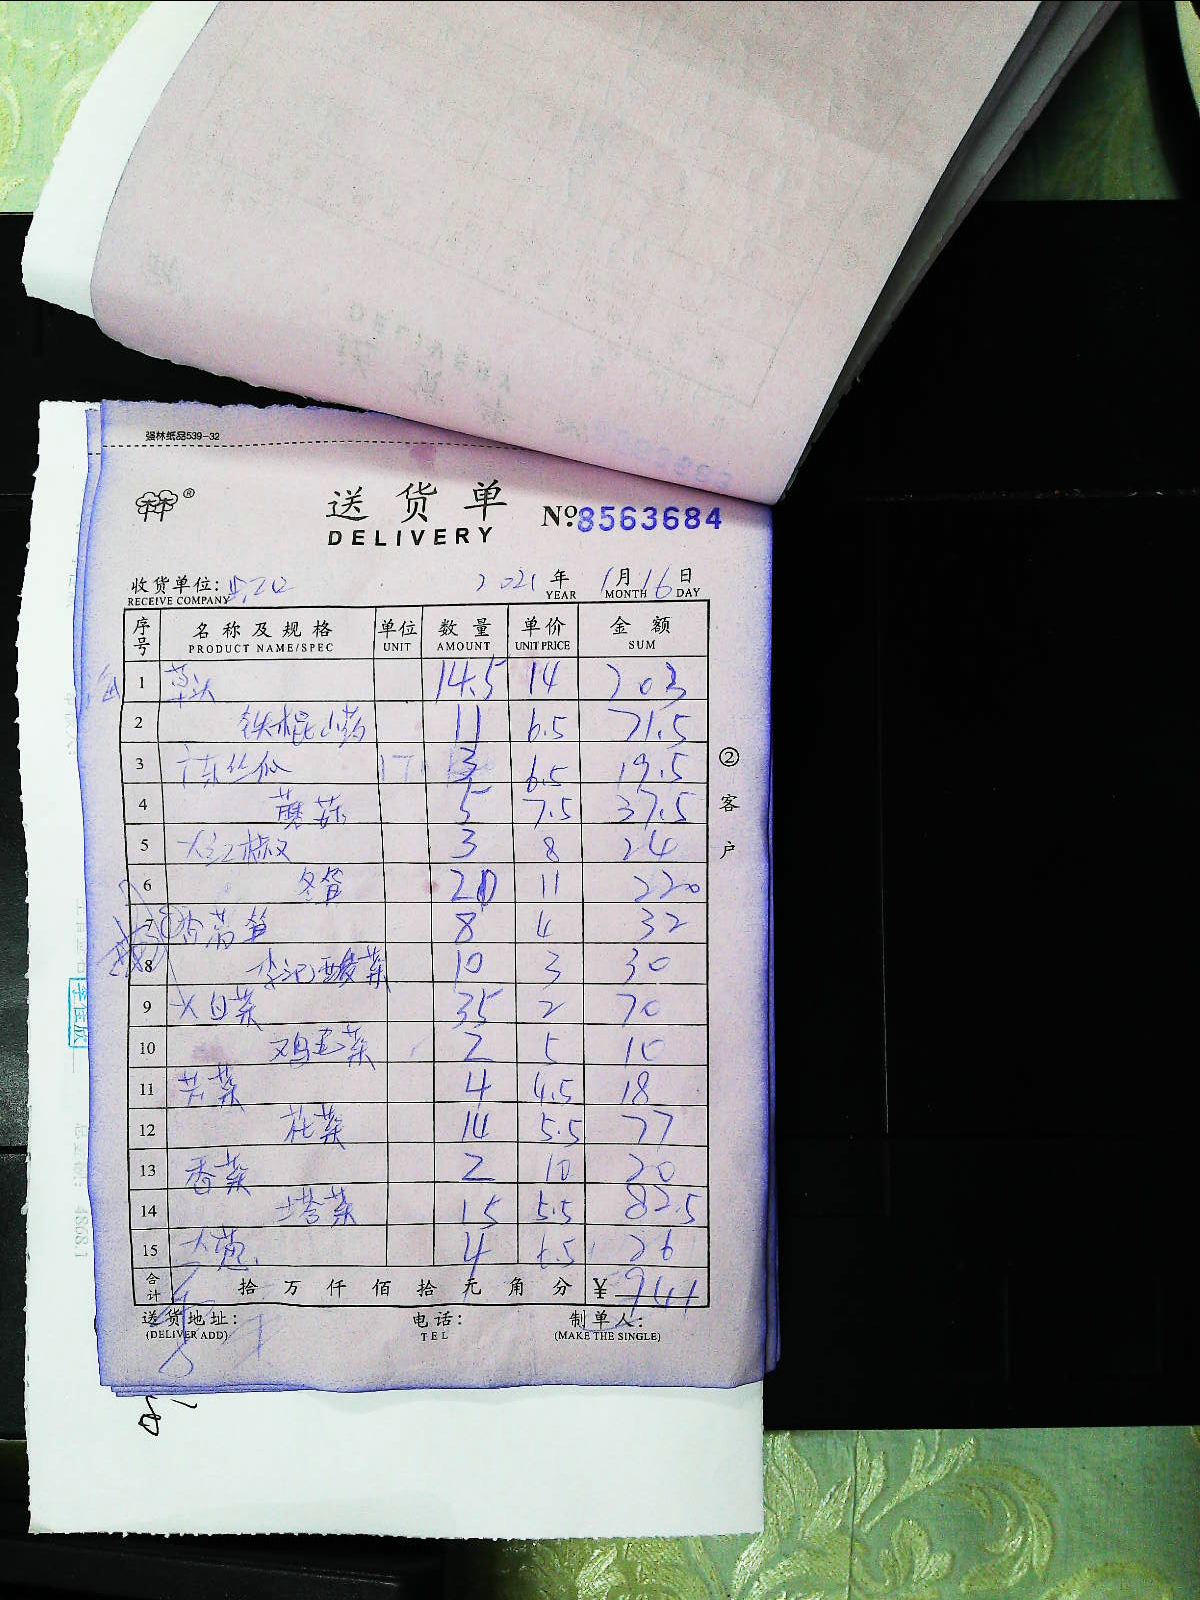 强林纸品539-32
®
送货单 №8563684
DELIVERY
收货单位: 2021 年 1 月 16 日
RECEIVE COMPANY YEAR MONTH DAY
序号 名称及规格 单位 数量 单价 金额
PRODUCT NAME/SPEC UNIT AMOUNT UNIT PRICE SUM
1 草头 14.5 14 203
2 铁棍山药 11 6.5 71.5
3 丝瓜 3 6.5 19.5
4 蘑菇 5 7.5 37.5
5 大红椒 3 8 24
6 冬笋 20 11 220
7 香莴笋 8 4 32
8 李记酸菜 10 3 30
9 大白菜 35 2 70
10 鸡毛菜 2 5 10
11 芹菜 4 4.5 18
12 菜 14 5.5 77
13 香菜 2 10 20
14 塔菜 15 5.5 82.5
15 大葱 4 6.5 26
合计 拾 万 仟 佰 拾 元 角 分 ¥ 941
送货地址: 电话: 制单人:
(DELIVER ADD) TEL (MAKE THE SINGLE)
②客户
李佳欣
4868.1